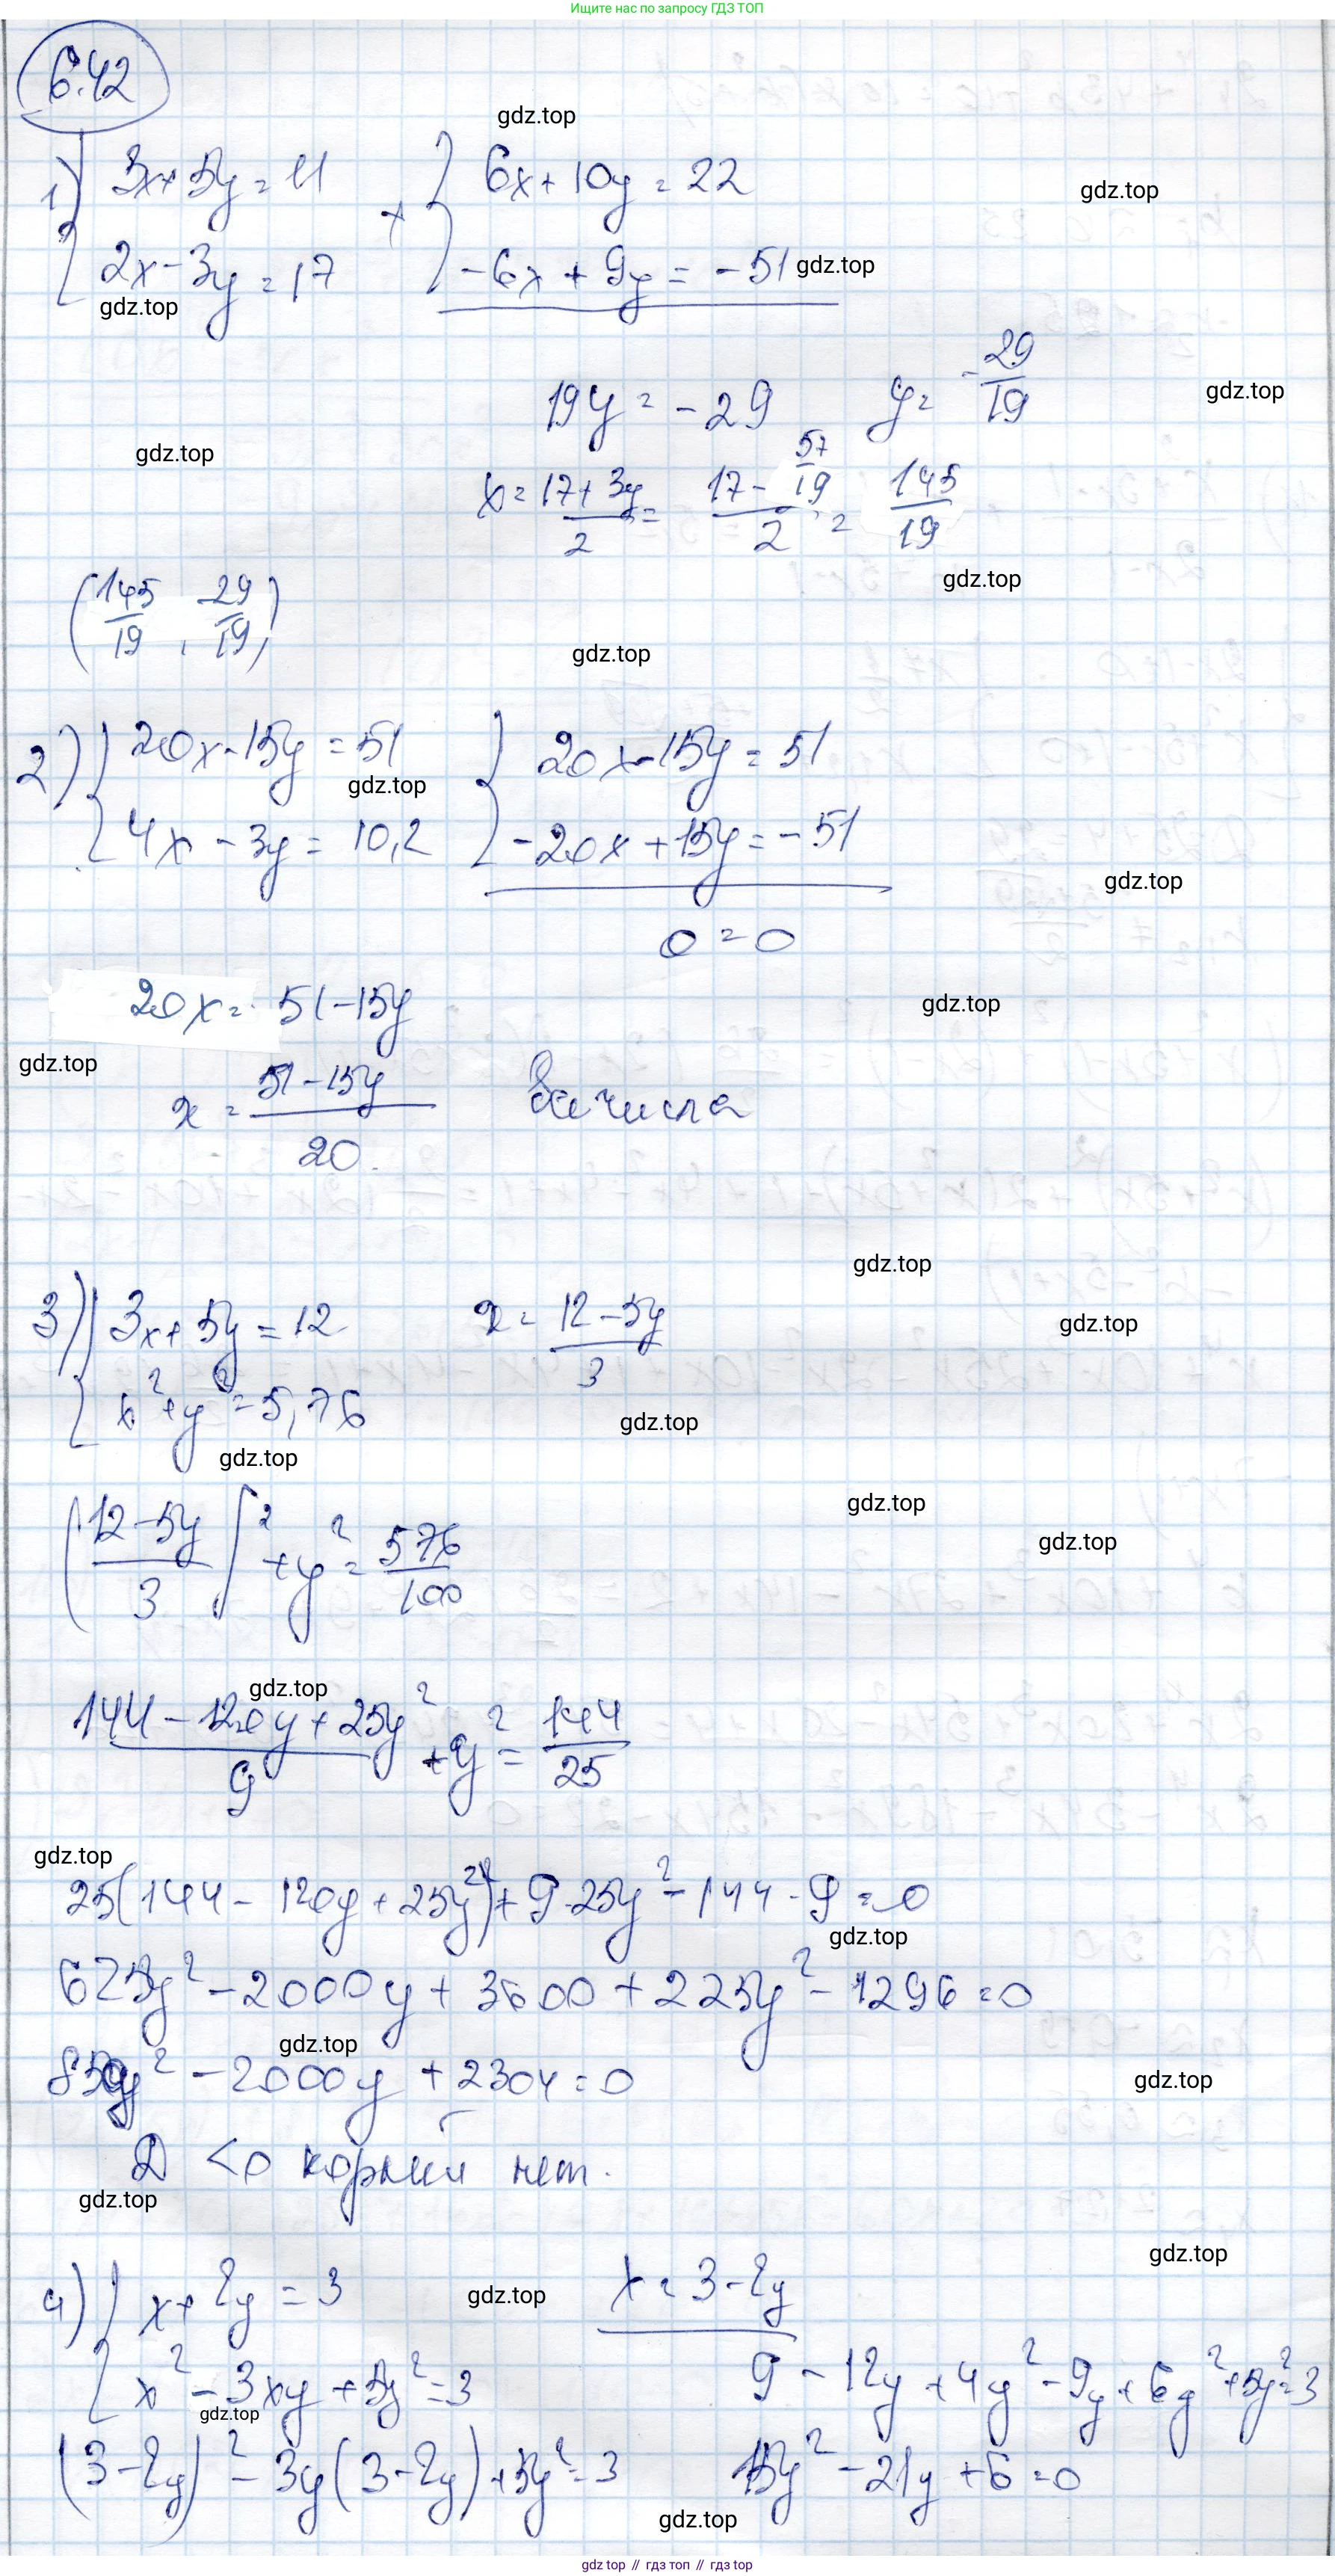 Ищите нас по запросу ГДЗ ТОП
6.42
gdz.top
1) 3x+5y=11 + 6x+10y=22
gdz.top
2x-3y=17 -6x+9y=-51
gdz.top
gdz.top
19y=-29 y=-29/19
gdz.top
gdz.top
x=(17+3y)/2=(17-57/19)/2=145/19
gdz.top
(145/19, -29/19)
gdz.top
2) 20x-15y=51 20x-15y=51
gdz.top
4x-3y=10,2 -20x+15y=-51
gdz.top
0=0
20x=51-15y
gdz.top
gdz.top
x=(51-15y)/20 все числа
gdz.top
3) 3x+5y=12 x=(12-5y)/3
gdz.top
x²+y²=5,76
gdz.top
gdz.top
gdz.top
((12-5y)/3)²+y²=576/100
gdz.top
gdz.top
(144-120y+25y²)/9+y²=144/25
gdz.top
25(144-120y+25y²)+9·25y²-144·9=0
gdz.top
625y²-2000y+3600+225y²-1296=0
gdz.top
850y²-2000y+2304=0
gdz.top
D<0 корней нет.
gdz.top
gdz.top
4) x+2y=3 x=3-2y
gdz.top
x²-3xy+5y²=3 9-12y+4y²-9y+6y²+5y²=3
gdz.top
(3-2y)²-3y(3-2y)+5y²=3 15y²-21y+6=0
gdz.top
gdz.top // гдз топ // гдз top